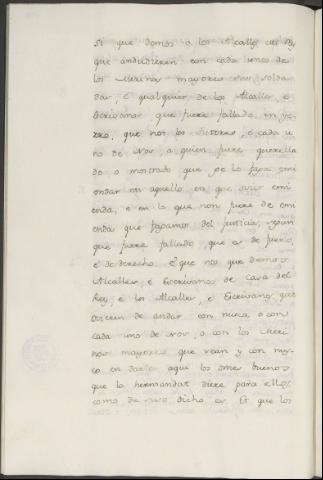 Si que domos a los Alcalles del Rey
que andudieren con cada unos de
los Merinos mayores por solda
dar, é qualquier de los Alcalles, e
Escrivanos que fuere fallado en ye
rro, que nos los Tutores, é cada u
no de Nos, a quien fuere querella
do o mostrado que se lo faga emi
endar en aquello en que oviere emi
enda; e en lo que non fuere de emi
enda que fagamos del justicia, segun
que fuere fallado, que es de fuero,
é de derecho. É que nos que demos
Alcalles, é Escrivanos de casa del
Rey, e los Alcalles, e Escrivanos que
ovieren de andar con nusco, o con
cada uno de Nos, o con los Meri
nos mayores que sean y con nus
co en darlo aqui los omes buenos
que la hermandat diere para ello,
como de suso dicho es. Et que los